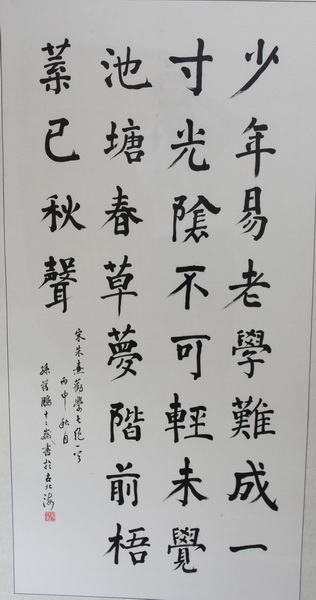 少年易老學難成一
寸光陰不可輕未覺
池塘春草夢階前梧
葉已秋聲
宋朱熹勸學七絕一首
丙申秋月
孫 鵬十二歲書於古北海